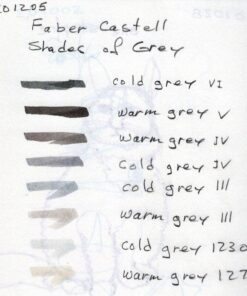 Faber Castell
Shades of Grey
cold grey VI
warm grey V
warm grey IV
cold grey IV
cold grey III
warm grey III
cold grey 1230
warm grey 127